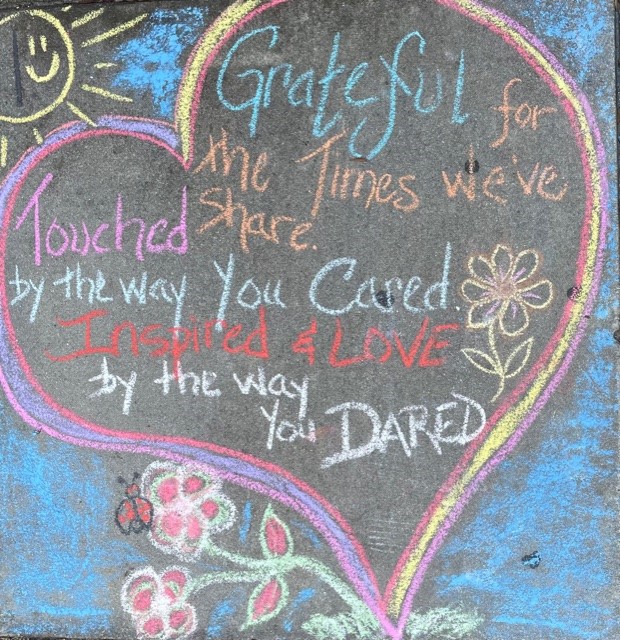 Grateful for
the Times we've
share.
Touched
by the way You Cared.
Inspired & LOVE
by the way
You DARED